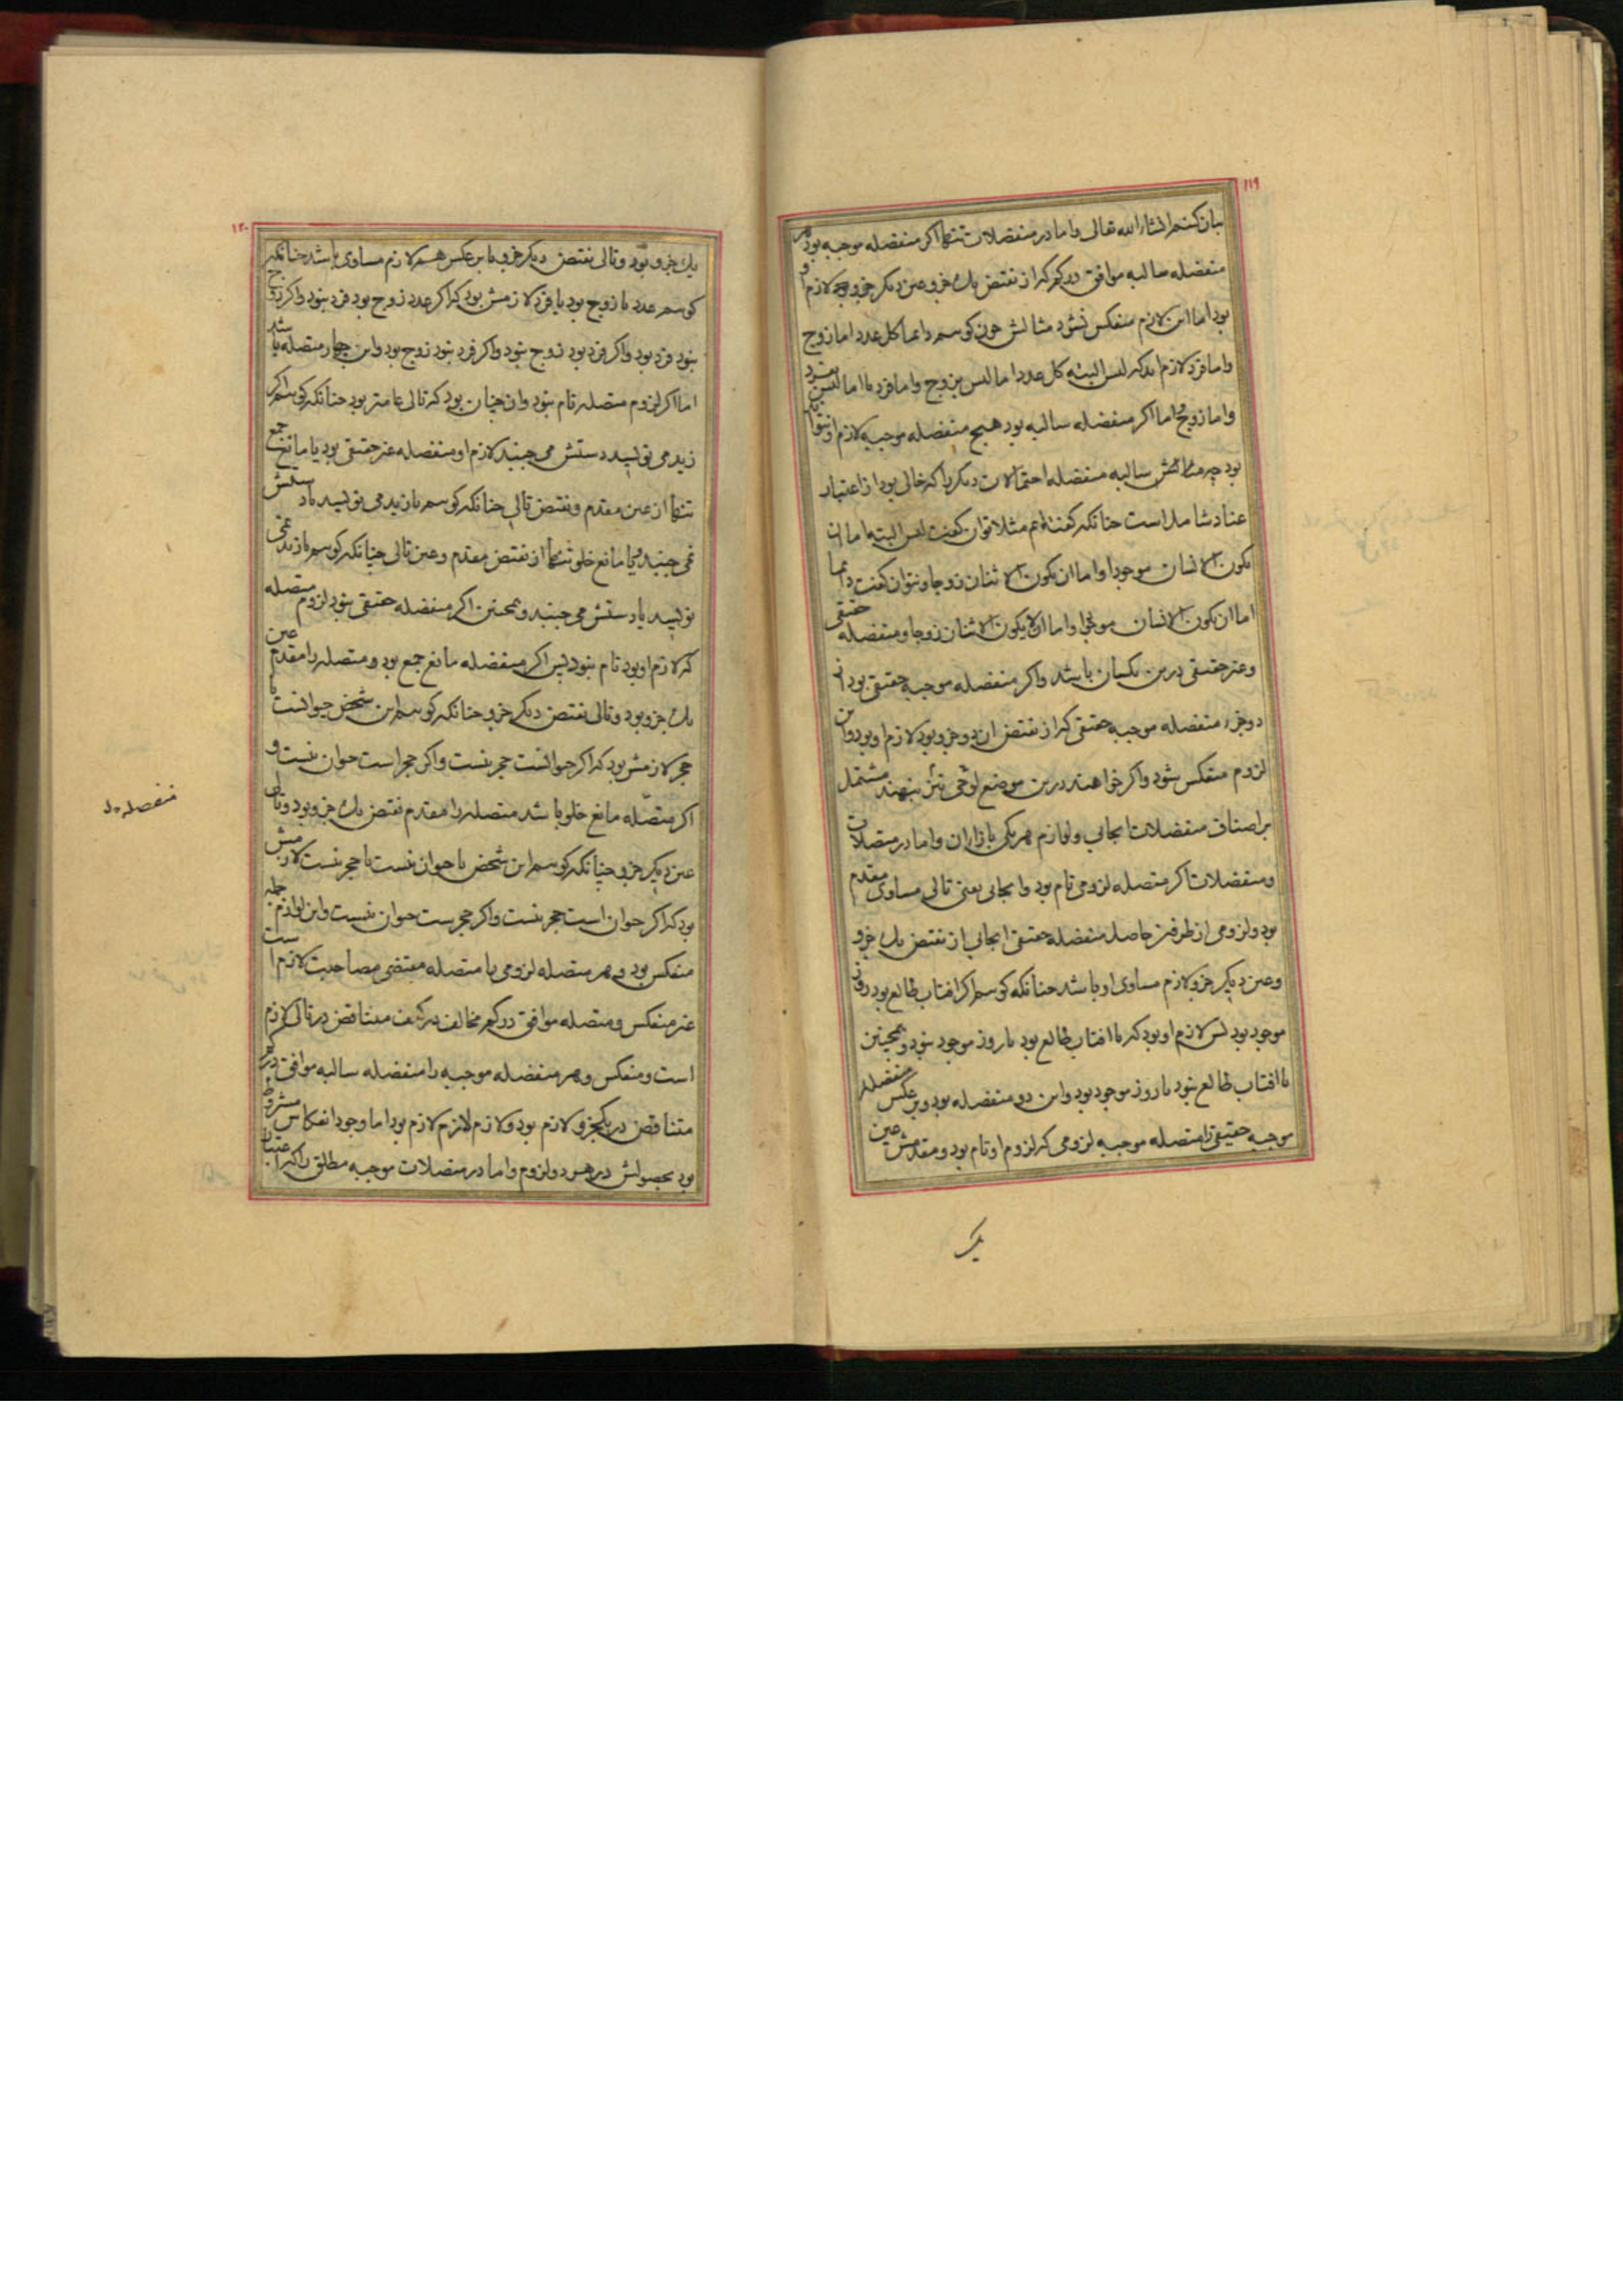 ۱۱۹
بیان کنیم انشاء الله تعالی واما در منفصلات تنها اکر منفصله موجبه بود هر
منفصله سالبه موافق در کم که از نقیض یک جزو وعین دیکر جزو بود لازم او
بود اما این لازم منعکس نشود مثالش چون کوییم دایما کل عدد اما زوج
واما فرد لازم آید که لیس البته کل عدد اما لیس بزوج واما فرد یا اما لیس بفرد
واما زوج اما اکر منفصله سالبه بود هیچ منفصله موجبه لازم او نتواند
بود چه سالبه منفصله احتمالات دیکر را که خالی بود از اعتبار
عناد شامل است چنانکه کفته‌ایم مثلا توان کفت لیس البته اما ان
یکون الانسان موجودا واما ان یکون الاثنان زوجا ونتوان کفت دایما
اما ان یکون الانسان موجودا واما ان لا یکون الاثنان زوجا ومنفصله حقیقی
وغیر حقیقی درین یکسان باشد واکر منفصله موجبه حقیقی بود از
دو جزء منفصله موجبه حقیقی که از نقیض ان دو جزو بود لازم او بود واین
لزوم منعکس شود واکر خواهند درین موضع لوحی نیز بنهند مشتمل
بر اصناف منفصلات ایجابی ولوازم هر یکی بازاء ان واما در متصلات
ومنفصلات اکر متصله لزومی تام بود وایجابی یعنی تالی مساوی مقدم
بود ولزومی از طرفین حاصل منفصله حقیقی ایجابی از نقیض یک جزو
وعین دیکر جزو لازم مساوی او باشد چنانکه کوییم اکر افتاب طالع بود روز
موجود بود پس لازم او بود که یا افتاب طالع بود یا روز موجود نبود وهمچنین
یا افتاب طالع نبود یا روز موجود بود واین دو منفصله بود وبر عکس منفصله
موجبه حقیقی را متصله موجبه لزومی که لزوم او تام بود ومقدمش عین
یک
۱۲۰
یک جزو بود وتالی نقیض دیکر جزو یا بر عکس هم لازم مساوی باشد چنانکه
کوییم عدد یا زوج بود یا فرد لازمش بود که اکر عدد زوج بود فرد نبود واکر زوج
نبود فرد بود واکر فرد بود زوج نبود واکر فرد نبود زوج بود واین چهار متصله باشد
اما اکر لزوم متصله تام نبود وان چنان بود که تالی عامتر بود چنانکه کوییم اکر
زید می نویسد دستش می جنبد لازم او منفصله غیر حقیقی بود یا مانع جمع
تنها از عین مقدم ونقیض تالی چنانکه کوییم یا زید می نویسد یا دستش
نمی جنبد ویا مانع خلو تنها از نقیض مقدم وعین تالی چنانکه کوییم یا زید نمی
نویسد یا دستش می جنبد وهمچنین اکر منفصله حقیقی نبود لزوم متصله
که لازم او بود تام نبود پس اکر منفصله مانع جمع بود ومتصله را مقدم عین
یک جزو بود وتالی نقیض دیکر جزو چنانکه کوییم این شخص حیوانست یا
حجر لازمش بود که اکر حیوانست حجر نیست واکر حجر است حیوان نیست و
اکر متصله مانع خلو باشد متصله را مقدم نقیض یک جزو بود وتالی
عین دیکر جزو چنانکه کوییم این شخص یا حیوان نیست یا حجر نیست لازمش
بود که اکر حیوان است حجر نیست واکر حجرست حیوان نیست واین لوازم جمله
منعکس بود وهر متصله لزومی یا متصله مقتضی مصاحبت لازم است
غیر منعکس ومتصله موافق در کم مخالف در کیف متناقض در تالی لازم
است ومنعکس وهر منفصله موجبه را منفصله سالبه موافق در کم
متناقض در یکجزو لازم بود ولازم لازم لازم بود اما وجود انعکاس مشروط
بود بحصولش در هر دو لزوم واما در متصلات موجبه مطلق را که اعتبار
منفصله